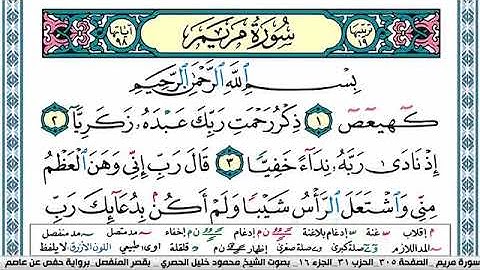 ترتيبها ١٩
سُورَةُ مَرْيَم
آياتها ٩٨
بِسْمِ اللَّهِ الرَّحْمَٰنِ الرَّحِيمِ
كٓهيعٓصٓ ١ ذِكْرُ رَحْمَتِ رَبِّكَ عَبْدَهُۥ زَكَرِيَّآ ٢
إِذْ نَادَىٰ رَبَّهُۥ نِدَآءً خَفِيًّا ٣ قَالَ رَبِّ إِنِّي وَهَنَ الْعَظْمُ
مِنِّي وَاشْتَعَلَ الرَّأْسُ شَيْبًا وَلَمْ أَكُنۢ بِدُعَآئِكَ رَبِّ
إقلاب غنة إدغام بلاغنة إدغام إخفاء مد متصل مد منفصل
المد اللازم صلة كبرى وصلة صغرى إظهار قلقلة طبيعي اللون الأزرق لا يلفظ
سورة مريم _ الصفحة ٣٠٥ الحزب ٣١ الجزء ١٦ _ بصوت الشيخ محمود خليل الحصري _ بقصر المنفصل _ برواية حفص عن عاصم